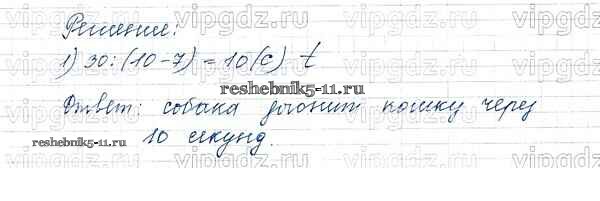 vipgdz.ru vipgdz.ru vipgdz.ru
Решение:
1) 30:(10-7)=10(с) t
reshebnik5-11.ru
Ответ: собака догонит кошку через
10 секунд.
reshebnik5-11.ru
vipgdz.ru vipgdz.ru vipgdz.ru